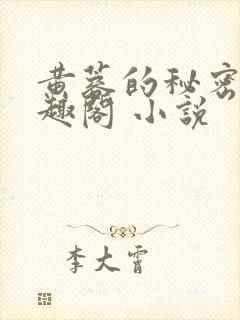 黄墓的秘密
趣阁 小説
李大霄